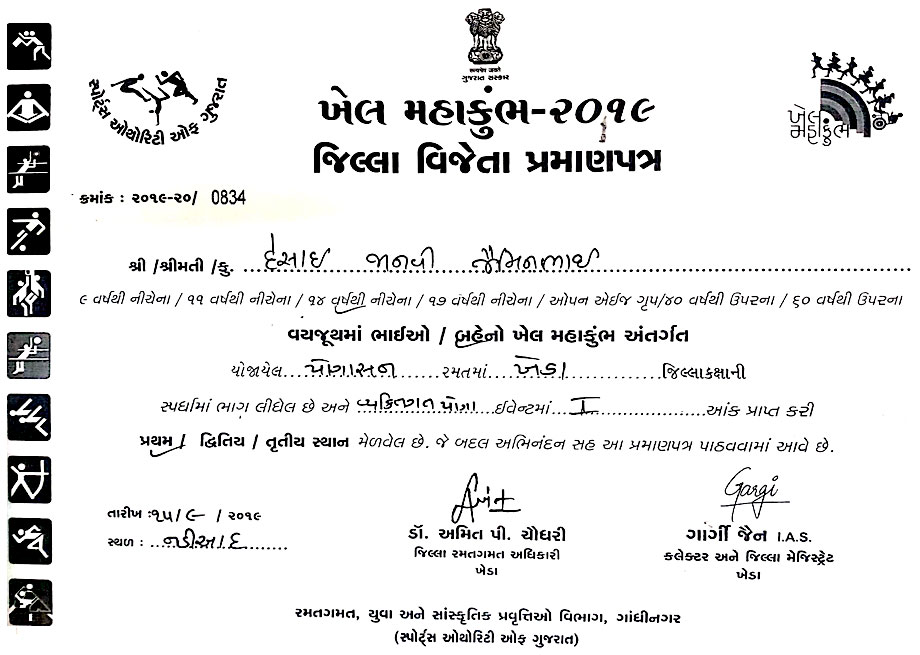 સત્યમેવ જયતે
ગુજરાત સરકાર
સ્પોર્ટ્સ ઓથોરિટી ઓફ ગુજરાત
ખેલ મહાકુંભ
ખેલ મહાકુંભ-૨૦૧૯
જિલ્લા વિજેતા પ્રમાણપત્ર
ક્રમાંક : ૨૦૧૯-૨૦/ 0834
શ્રી /શ્રીમતી /કુ. દેસાઈ જાનવી જૈમિનભાઈ
૯ વર્ષથી નીચેના / ૧૧ વર્ષથી નીચેના / ૧૪ વર્ષથી નીચેના / ૧૭ વર્ષથી નીચેના / ઓપન એઈજ ગૃપ/૪૦ વર્ષથી ઉપરના / ૬૦ વર્ષથી ઉપરના
વયજૂથમાં ભાઈઓ / બહેનો ખેલ મહાકુંભ અંતર્ગત
યોજાયેલ યોગાસન રમતમાં ખેડા જિલ્લાકક્ષાની
સ્પર્ધામાં ભાગ લીધેલ છે અને વ્યક્તિગત યોગા ઈવેન્ટમાં I આંક પ્રાપ્ત કરી
પ્રથમ / દ્વિતિય / તૃતીય સ્થાન મેળવેલ છે. જે બદલ અભિનંદન સહ આ પ્રમાણપત્ર પાઠવવામાં આવે છે.
Gargi
તારીખ :૧૫/૯ / ૨૦૧૯
સ્થળ : નડીઆદ
ડૉ. અમિત પી. ચૌધરી
જિલ્લા રમતગમત અધિકારી
ખેડા
ગાર્ગી જૈન I.A.S.
કલેકટર અને જિલ્લા મેજિસ્ટ્રેટ
ખેડા
રમતગમત, યુવા અને સાંસ્કૃતિક પ્રવૃત્તિઓ વિભાગ, ગાંધીનગર
(સ્પોર્ટ્સ ઓથોરિટી ઓફ ગુજરાત)